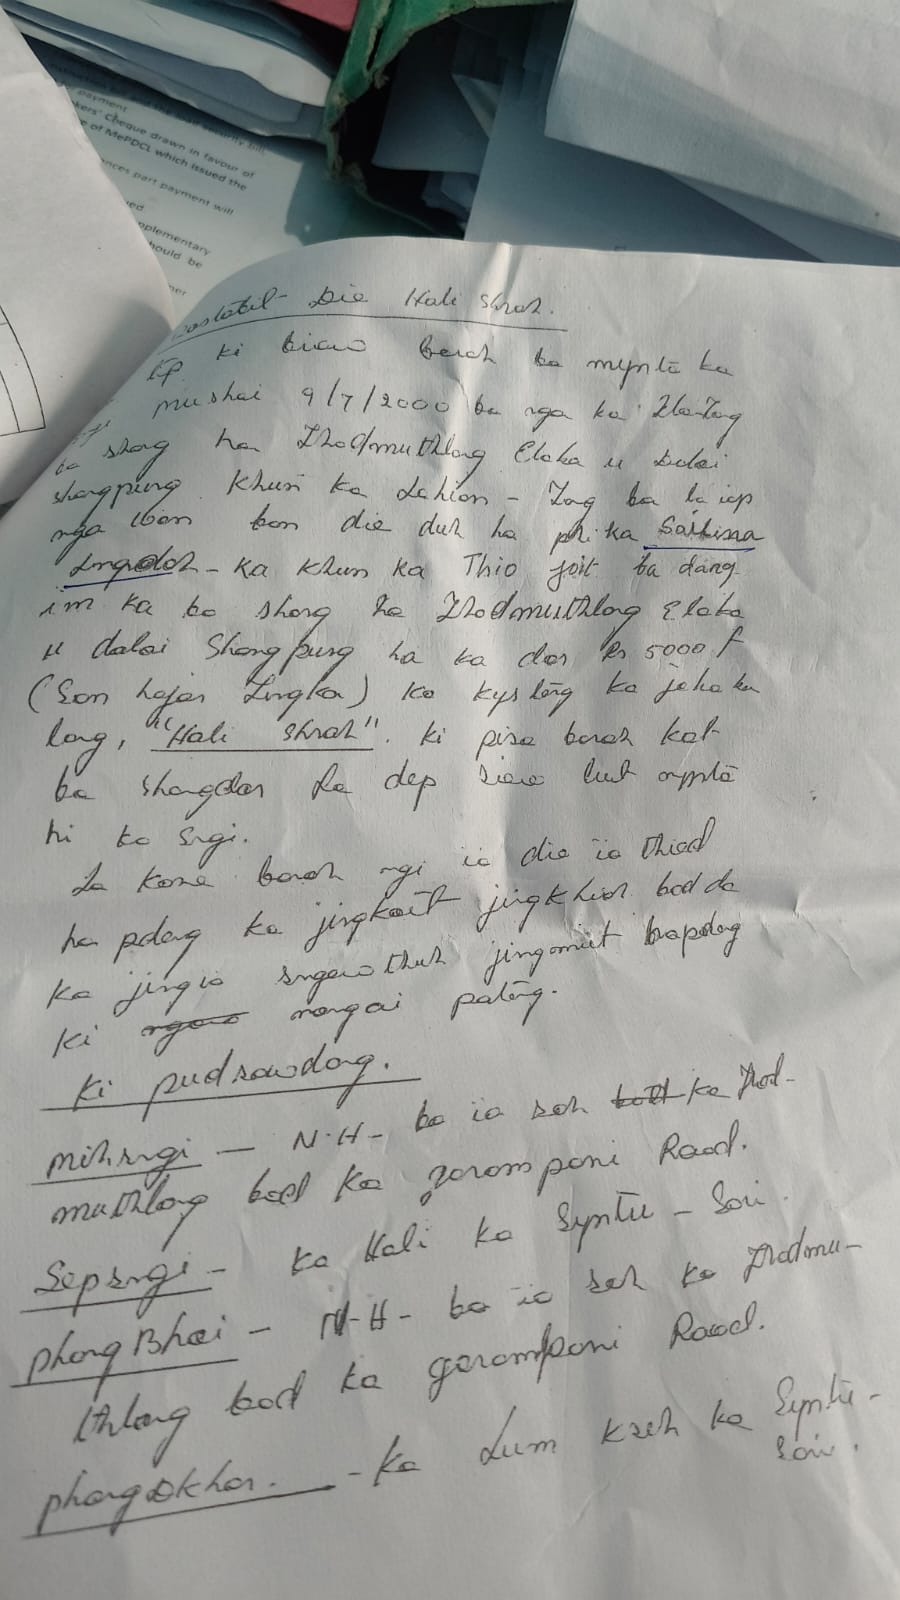 payment
kers' Cheque drawn in favour of
e of MePDCL which issued the
nces part payment will
ed
pplementary
hould be
Dastabil - Die Hali Shrah.
Ïp ki briew baroh ba mynta ka
mushai 9/7/2000 ba nga ka
ba shong ha Thadmuthlong Elaka u Dolai
shangpung khun ka Lahion - Tng ba la ïap
nga ban die duh ha pri ka Saitisna
Lngdoh - ka khun ka Thio joit ba dang
im ka ba shong ha Thadmuthlong Elaka
u dalai Shangpung ha ka dor Rs 5000 f
(San hajar Tngka) ka kyrteng ka jaka ka
long, "Hali Shrah". ki pisa baroh kat
ba shongdor la dep siew lut mynta
hi ka sngi.
La kane baroh ngi ia die ia thied
ha pdeng ka jingkoit jingkhiah bad da
ka jingia sngewthuh jingmut bapdeng
ki ngaw nongai pateng.
ki pudsawdong.
mihsngi - N.H - ba ia soh bad ka Thad-
muthlong bad ka garampani Road.
Sepsngi - ka Hali ka Syntu - Sari.
phang Bhoi - N-H - ba ia soh ka Thadmu-
thlong bad ka garampani Road.
phangskhar. - ka Lum kseh ka Syntu-
Sari.